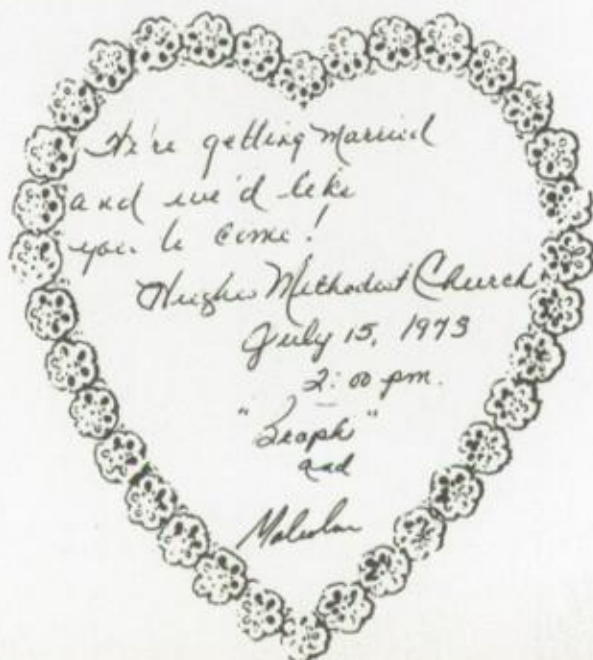 We're getting married
and we'd like
you to come!
Hughes Methodist Church
July 15, 1973
2:00 pm.
and
Malcolm